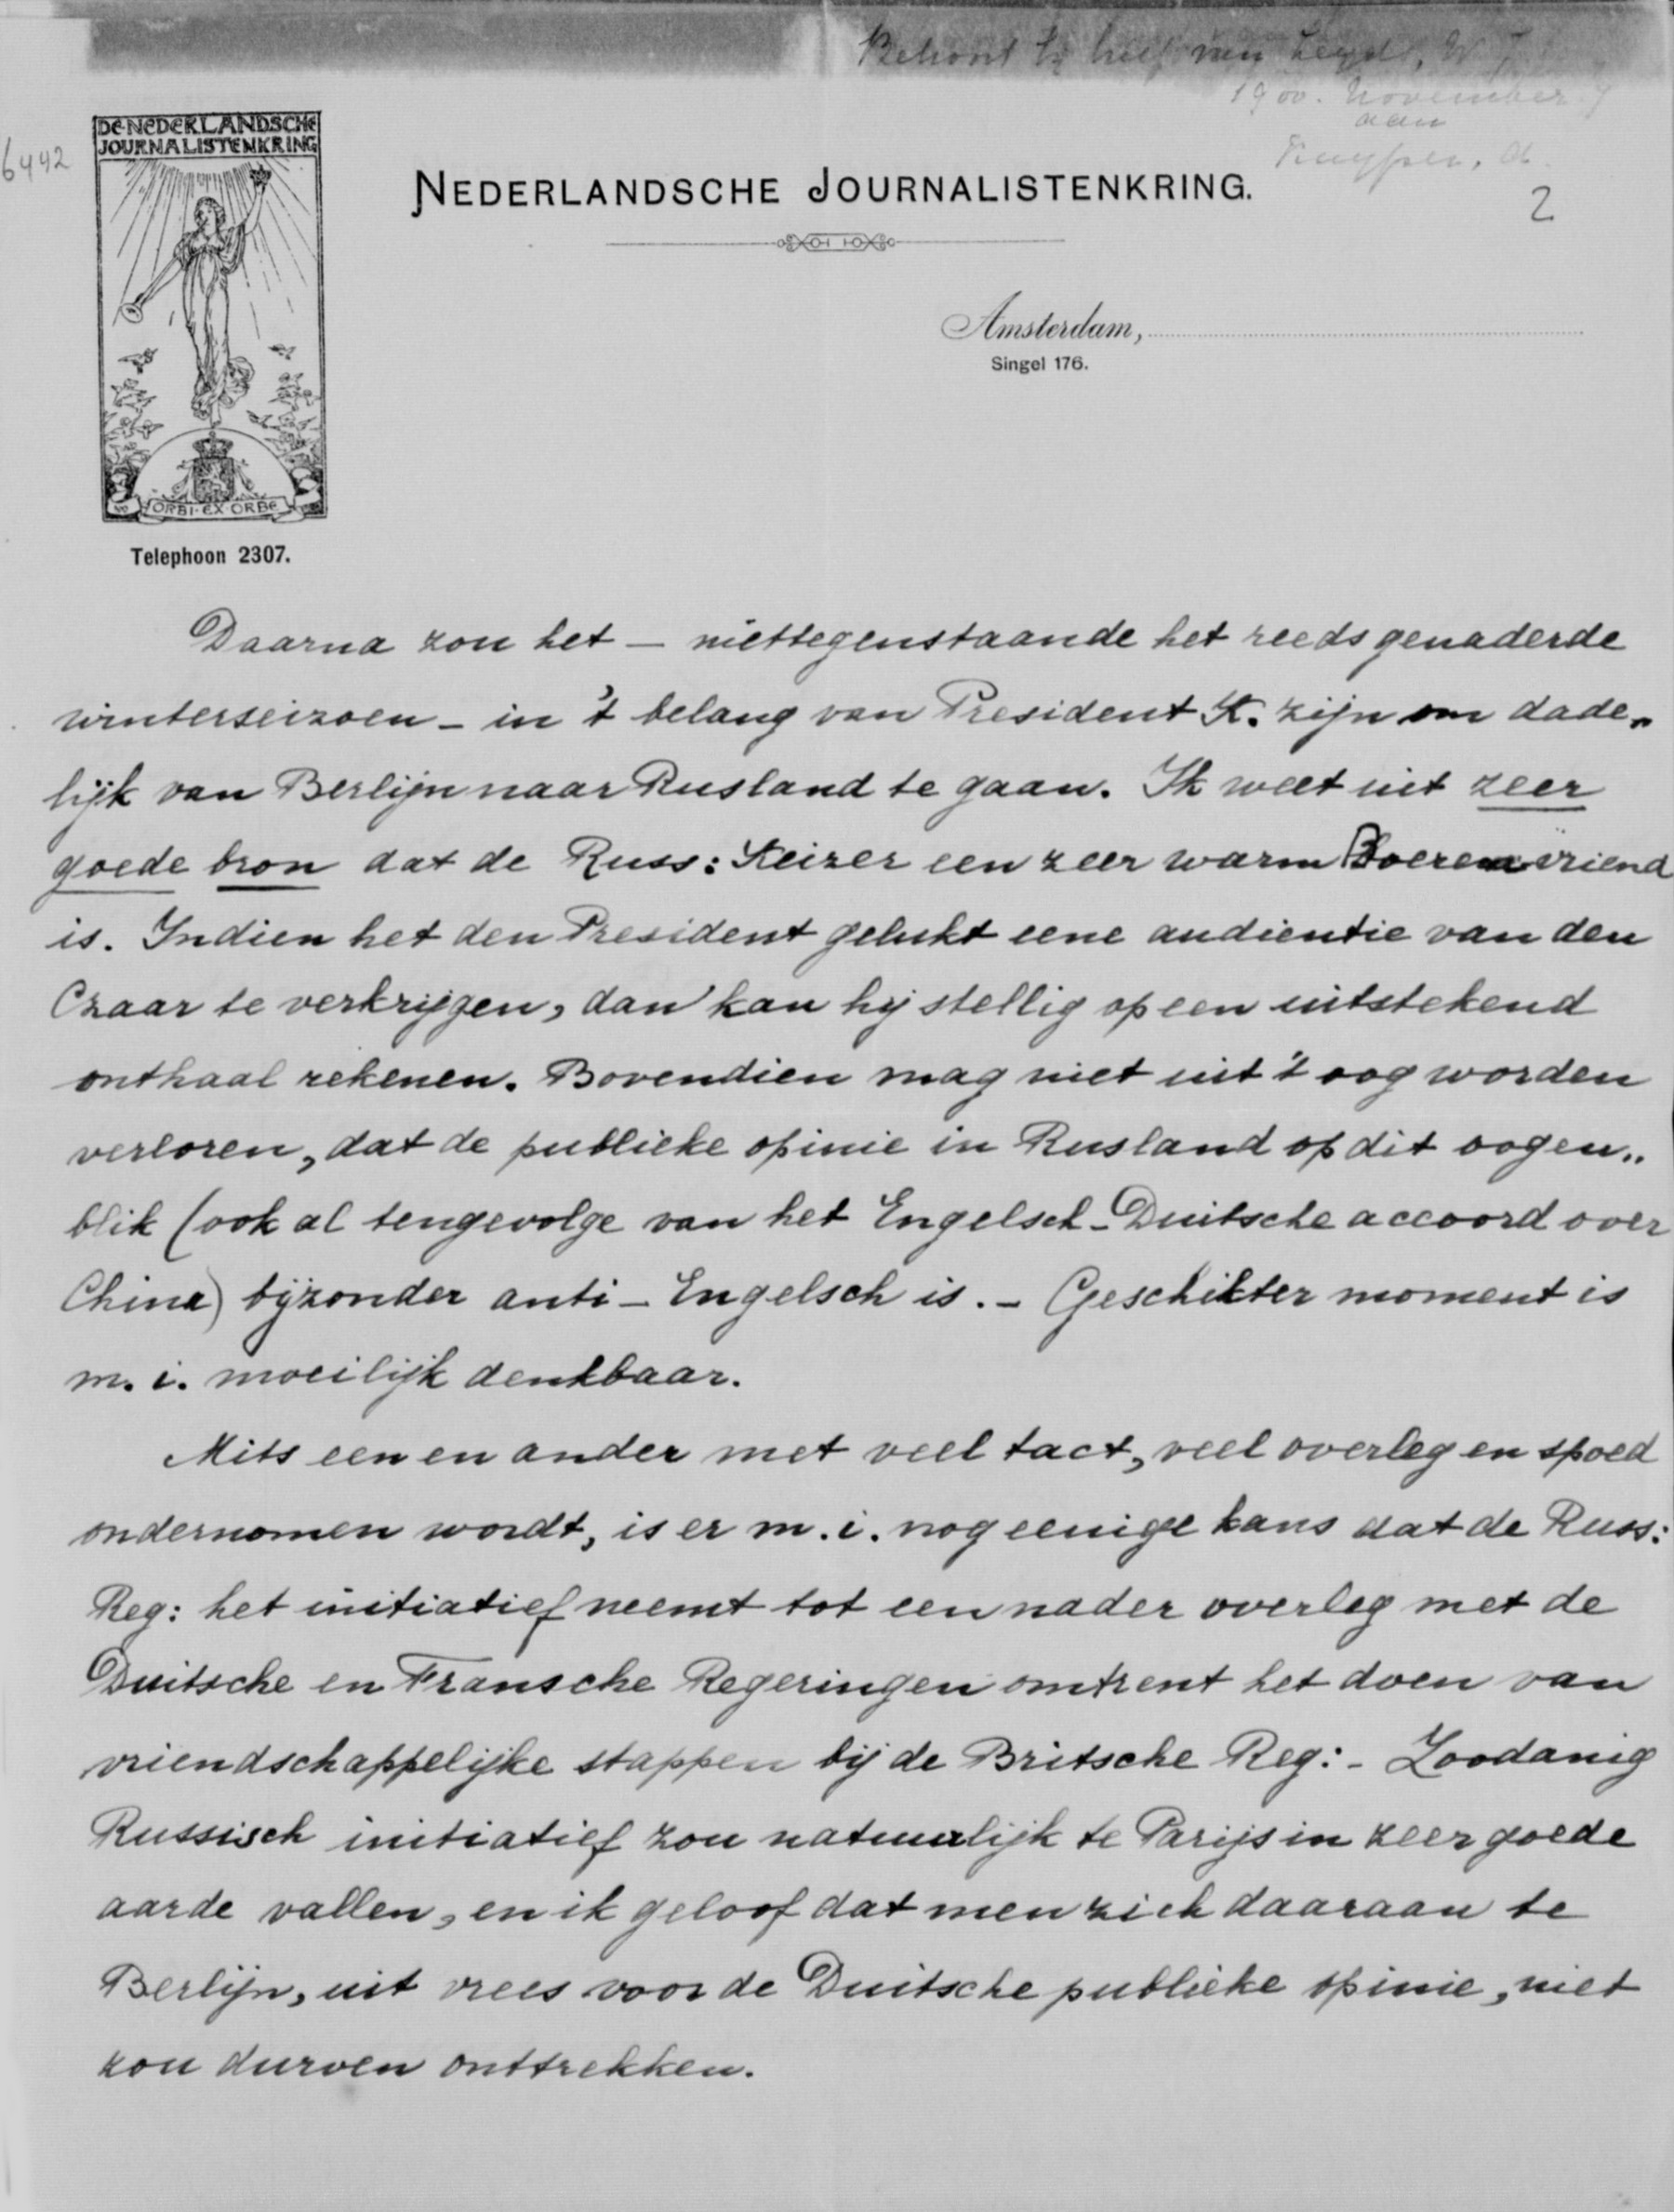 Behoort bij brief van Leyds, W.J.
1900. November 9
aan
Kuyper, A.
6442
2
DE NEDERLANDSCHE
JOURNALISTENKRING
NEDERLANDSCHE JOURNALISTENKRING.
Amsterdam,
Singel 176.
ORBI·EX·ORBE
Telephoon 2307.
Daarna zou het — niettegenstaande het reeds genaderde
winterseizoen – in 't belang van President K. zijn om dade„
lijk van Berlijn naar Rusland te gaan. Ik weet uit zeer
goede bron dat de Russ: Keizer een zeer warm Boerenvriend
is. Indien het den President gelukt eene audientie van den
Czaar te verkrijgen, dan kan hij stellig op een uitstekend
onthaal rekenen. Bovendien mag niet uit 't oog worden
verloren, dat de publieke opinie in Rusland op dit oogen„
blik (ook al tengevolge van het Engelsch-Duitsche accoord over
China) bijzonder anti – Engelsch is. – Geschikter moment is
m. i. moeilijk denkbaar.
Mits een en ander met veel tact, veel overleg en spoed
ondernomen wordt, is er m. i. nog eenige kans dat de Russ:
Reg: het initiatief neemt tot een nader overleg met de
Duitsche en Fransche Regeringen omtrent het doen van
vriendschappelijke stappen bij de Britsche Reg: – Zoodanig
Russisch initiatief zou natuurlijk te Parijs in zeer goede
aarde vallen, en ik geloof dat men zich daaraan te
Berlijn, uit vrees voor de Duitsche publieke opinie, niet
zou durven onttrekken.